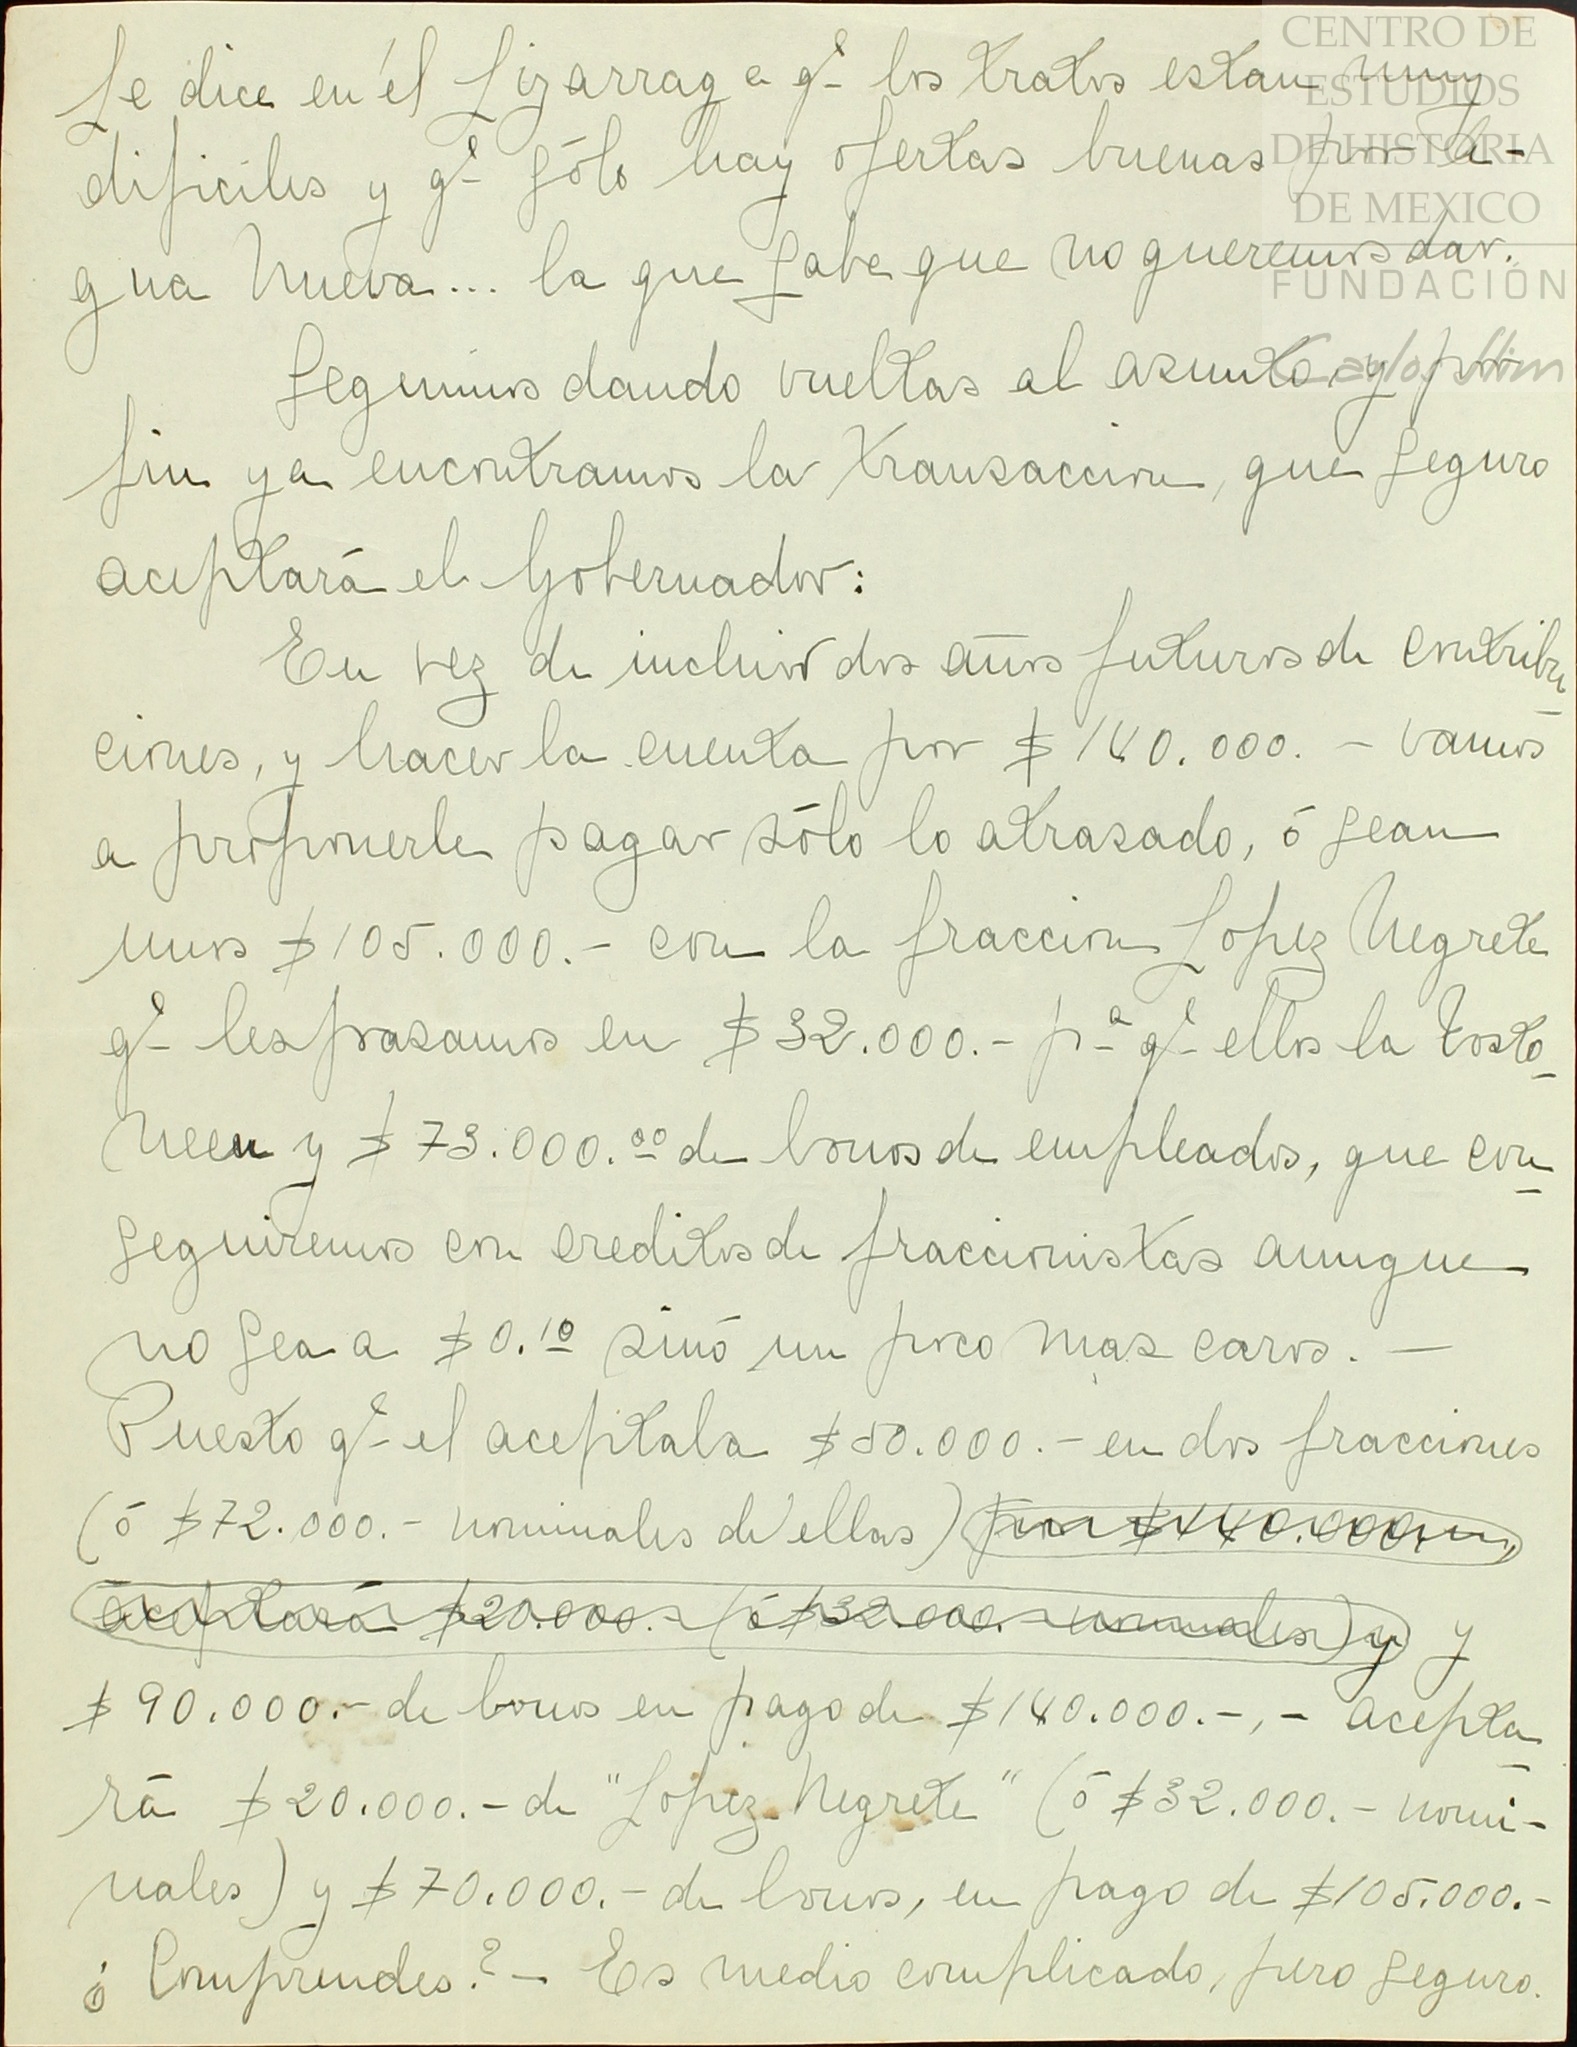 CENTRO DE
ESTUDIOS
DE HISTORIA
DE MEXICO
FUNDACIÓN
Carlos Slim
Le dice en él Lizarraga qe los tratos estan muy
dificiles y qe sólo hay ofertas buenas por A-
gua Nueva... la que sabe que no queremos dar.
Seguimos dando vueltas al asunto, y por
fin ya encontramos la transaccion, que seguro
aceptará el Gobernador:
En vez de incluir dos años futuros de contribu
ciones, y hacer la cuenta por $140.000.- vamos
a proponerle pagar sólo lo atrasado, ó sean
unos $105.000.- con la fraccion Lopez Negrete
qe les pasamos en $32.000.- pa qe ellos la tosto-
neen y $73.000.00 de bonos de empleados, que con-
seguiremos con creditos de fraccionistas aunque
no sea a $0.10 sinó un poco mas caros. -
Puesto qe el aceptaba $50.000.- en dos fracciones
(ó $72.000.- nominales de ellas) por $140.000
aceptará $20.000.- (ó $32.000.- nominales) y y
$90.000.- de bonos en pago de $140.000.-, - acepta-
rá $20.000.- de "Lopez Negrete" (ó $32.000.- nomi-
nales) y $70.000.- de bonos, en pago de $105.000.-
¿Comprendes? - Es medio complicado, pero seguro.